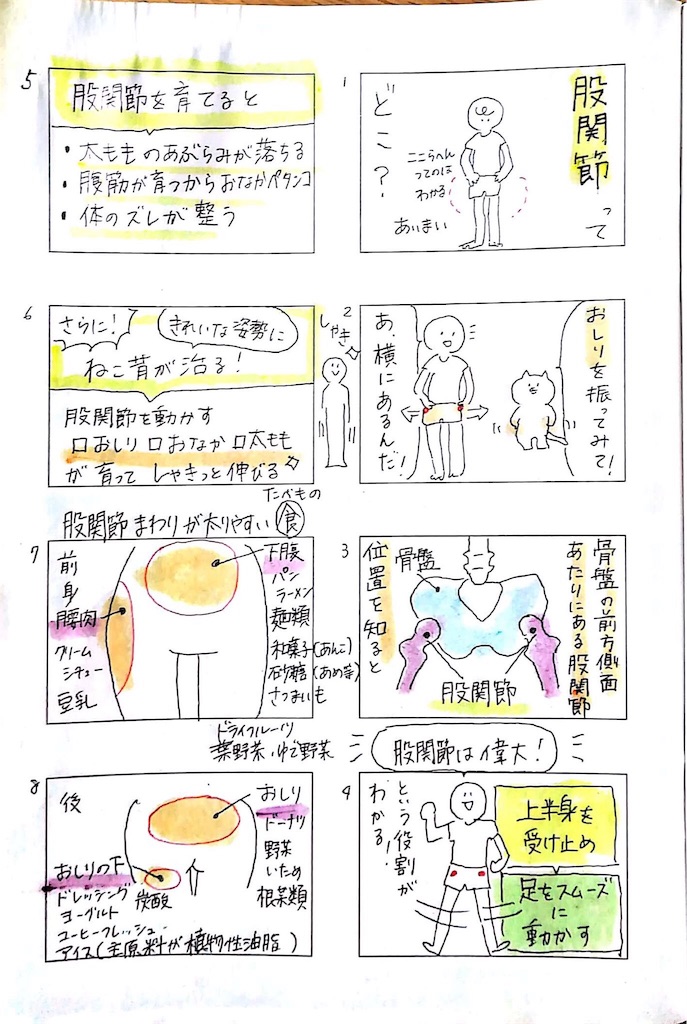 1
股関節
って
どこ?
ここらへん
ってのは
わかる
あいまい
2
おしりを振ってみて!
あ、横にあるんだ!
3
骨盤の前方側面
あたりにある股関節
位置を知ると
骨盤
股関節
股関節は偉大!
4
上半身を
受け止め
足をスムーズ
に
動かす
という役割が
わかる!
5
股関節を育てると
・太もものあぶらみが落ちる
・腹筋が育つからおなかペタンコ
・体のズレが整う
6
さらに!
きれいな姿勢に
ねこ背が治る!
股関節を動かす
口おしり 口おなか 口太もも
が育って しゃきっと伸びる
しゃき
股関節まわりが太りやすい 食
たべもの
7
前
身
腰肉
クリーム
シチュー
豆乳
下腹
パン
ラーメン
麺類
和菓子(あんこ)
砂糖(あめ等)
さつまいも
ドライフルーツ
葉野菜・ゆで野菜
8
後
おしり
ドーナツ
野菜
いため
根菜類
おしりの下
ドレッシング
炭酸
ヨーグルト
コーヒーフレッシュ
アイス(主原料が植物性油脂)